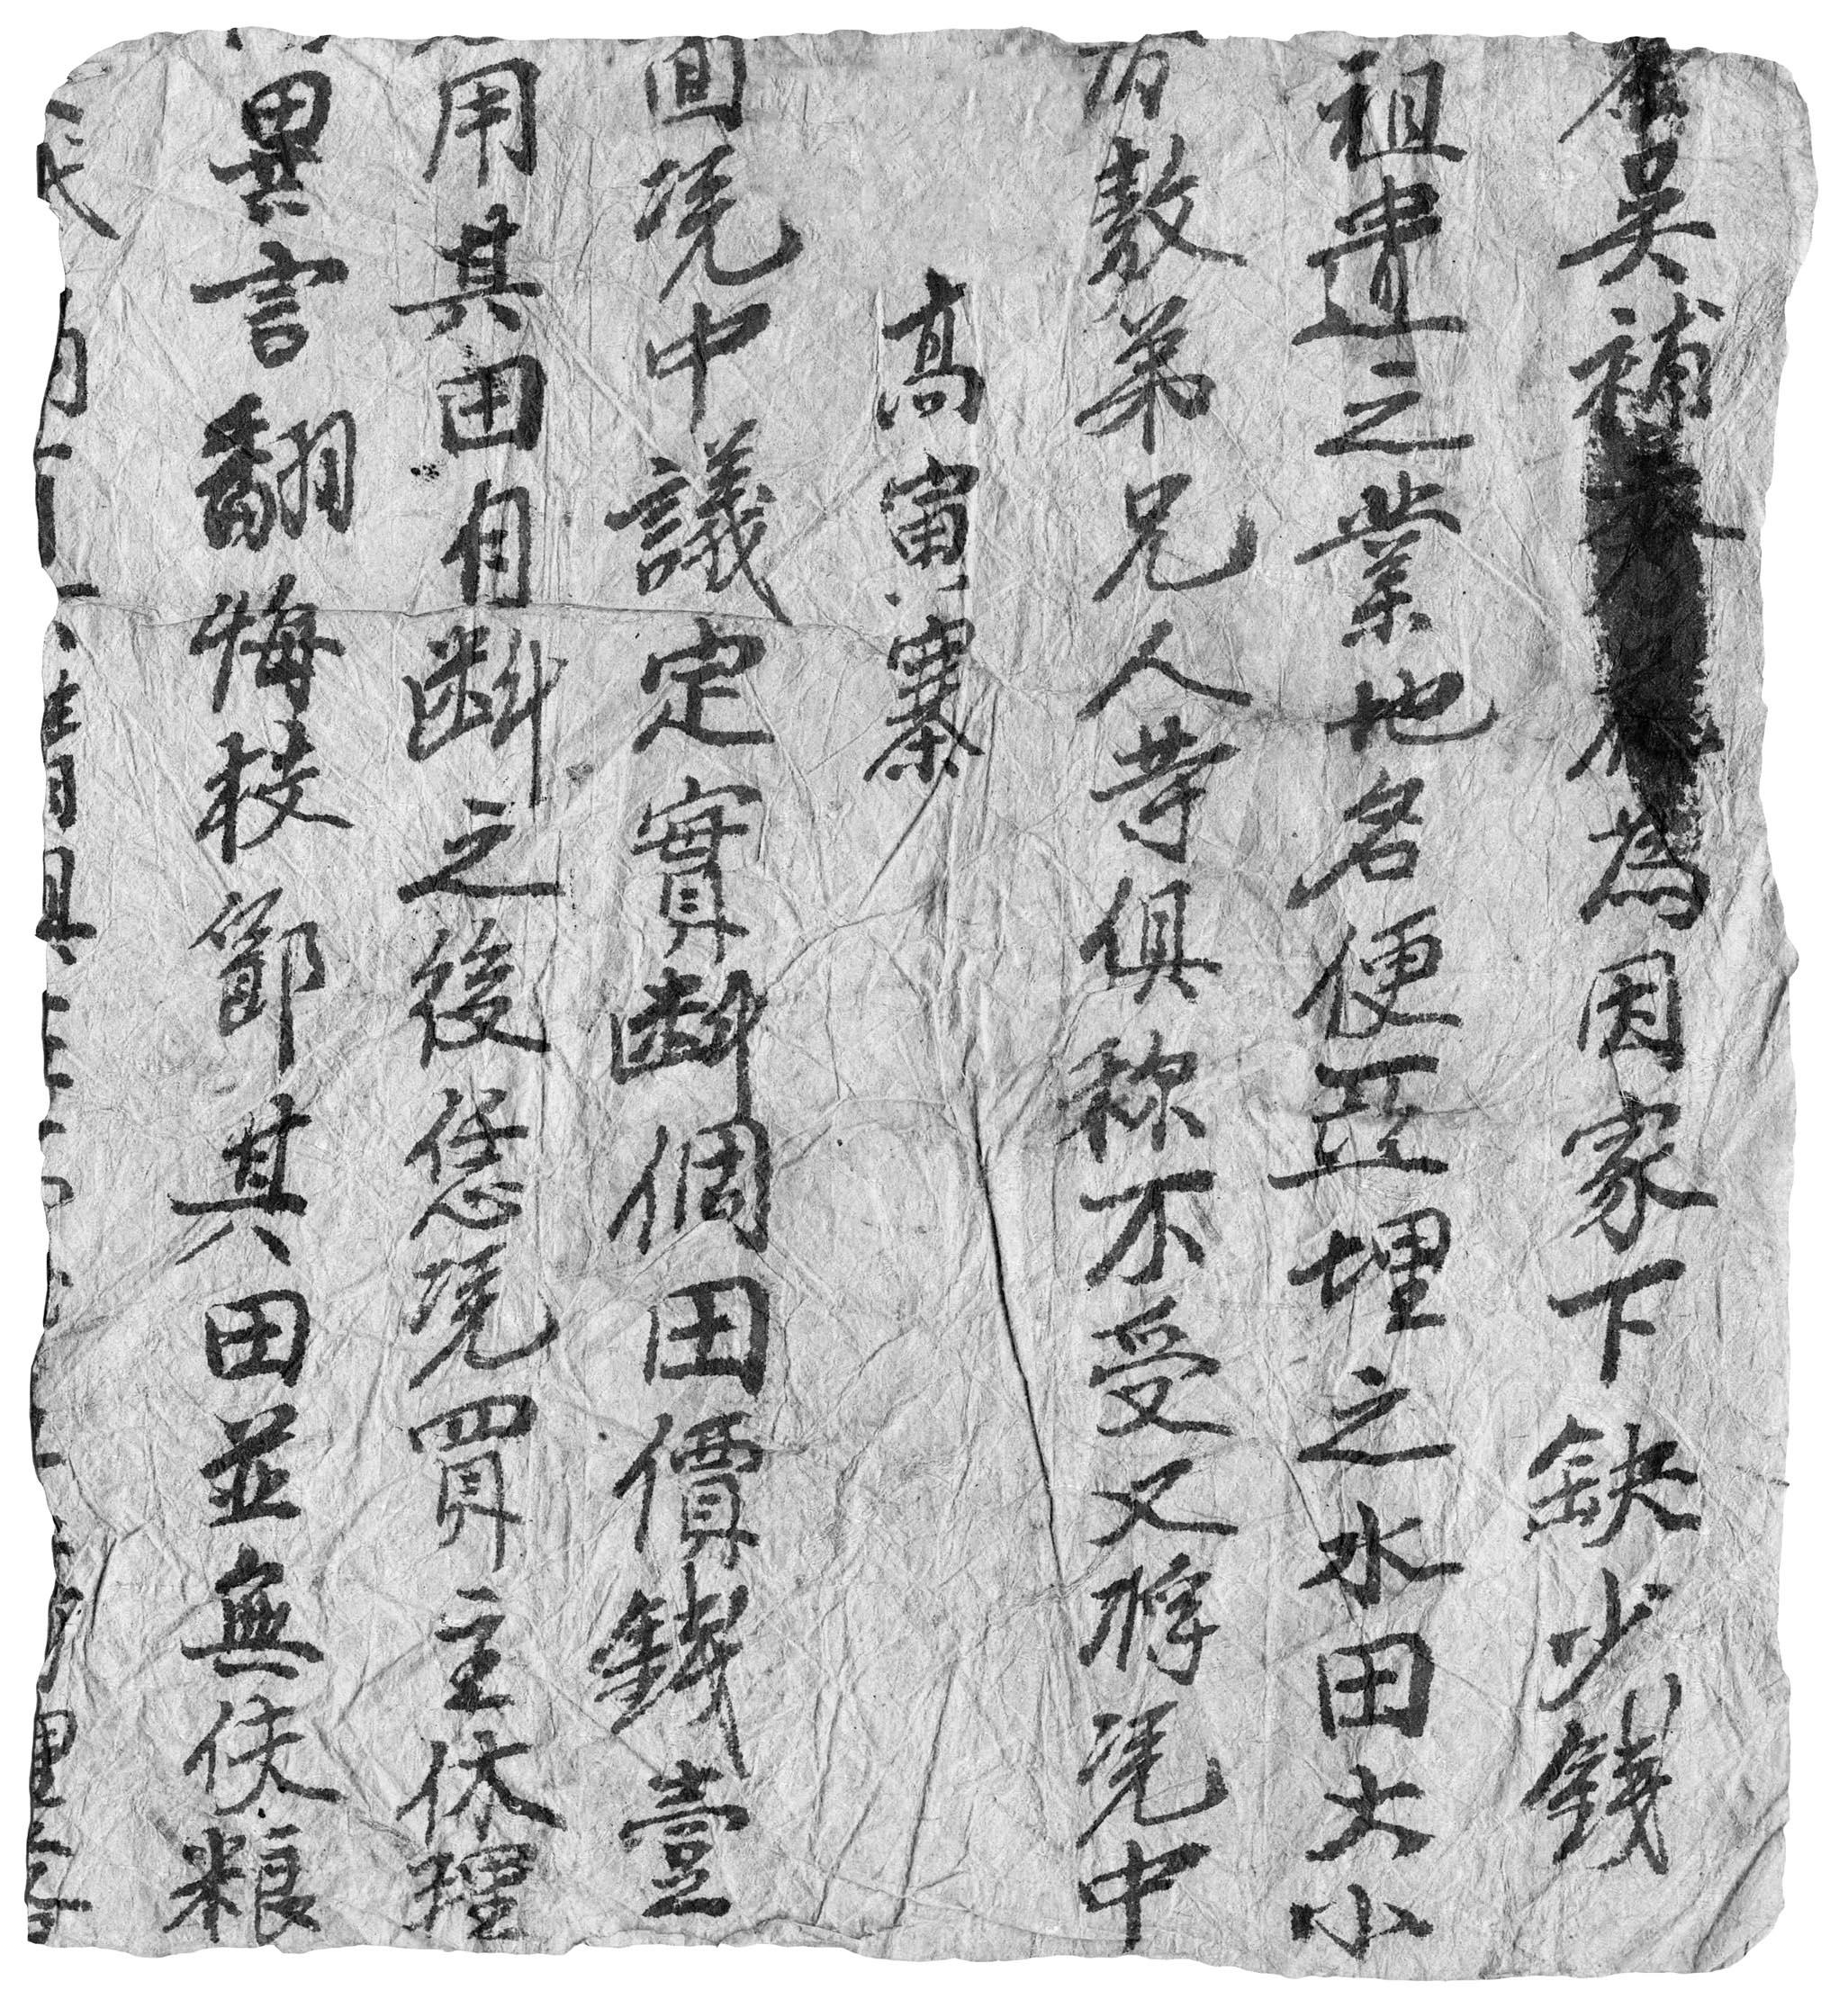 吳補為因家下缺少錢
祖遺之業地名便亞埋之水田大小
有數弟兄人等俱称不受又將凭中
高寅寨
面凭中議定實断個田價錢壹
用其田自断之後恁凭買主休理
異言翻悔杈節其田並無佚粮